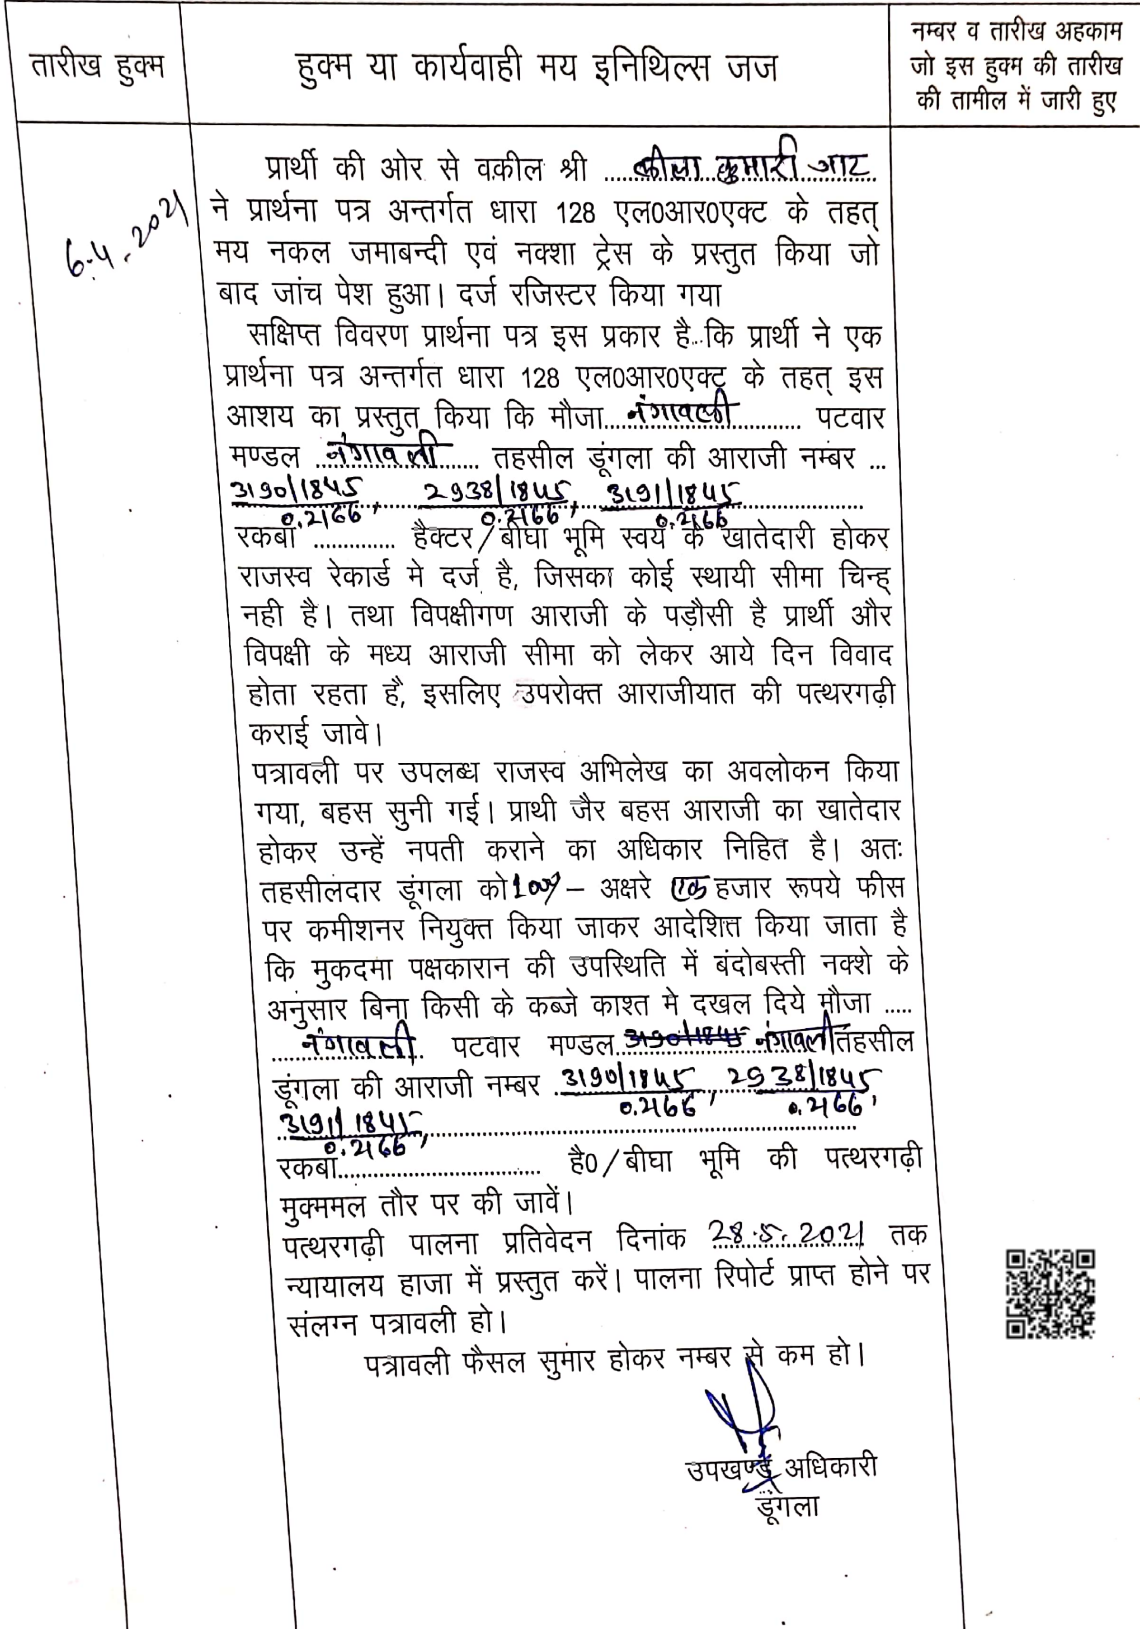 तारीख हुक्म
हुक्म या कार्यवाही मय इनिथिल्स जज
नम्बर व तारीख अहकाम
जो इस हुक्म की तारीख
की तामील में जारी हुए
6.4.2021
प्रार्थी की ओर से वकील श्री ......कुमारी जाट
ने प्रार्थना पत्र अन्तर्गत धारा 128 एल0आर0एक्ट के तहत्
मय नकल जमाबन्दी एवं नक्शा ट्रेस के प्रस्तुत किया जो
बाद जांच पेश हुआ। दर्ज रजिस्टर किया गया
सक्षिप्त विवरण प्रार्थना पत्र इस प्रकार है..कि प्रार्थी ने एक
प्रार्थना पत्र अन्तर्गत धारा 128 एल0आर0एक्ट के तहत् इस
आशय का प्रस्तुत किया कि मौजा...नंगावली............ पटवार
मण्डल ....नंगावली...... तहसील डूंगला की आराजी नम्बर ...
3190/1845, 2938/1845, 3191/1845
0.2166 0.2166 0.2166
रकबा .............. हैक्टर/बीघा भूमि स्वयं के खातेदारी होकर
राजस्व रेकार्ड मे दर्ज है, जिसका कोई स्थायी सीमा चिन्ह्
नही है। तथा विपक्षीगण आराजी के पड़ौसी है प्रार्थी और
विपक्षी के मध्य आराजी सीमा को लेकर आये दिन विवाद
होता रहता है, इसलिए उपरोक्त आराजीयात की पत्थरगढ़ी
कराई जावे।
पत्रावली पर उपलब्ध राजस्व अभिलेख का अवलोकन किया
गया, बहस सुनी गई। प्राथी जैर बहस आराजी का खातेदार
होकर उन्हें नपती कराने का अधिकार निहित है। अतः
तहसीलदार डूंगला को 1000/- अक्षरे एक हजार रूपये फीस
पर कमीशनर नियुक्त किया जाकर आदेशित किया जाता है
कि मुकदमा पक्षकारान की उपस्थिति में बंदोबस्ती नक्शे के
अनुसार बिना किसी के कब्जे काश्त मे दखल दिये मौजा .....
...नंगावली.. पटवार मण्डल 3190/1845 नंगावली तहसील
डूंगला की आराजी नम्बर 3190/1845, 2938/1845
0.2166 0.2166,
3191/1845,
0.2166
रकबा.............................. है0/बीघा भूमि की पत्थरगढ़ी
मुक्ममल तौर पर की जावें।
पत्थरगढ़ी पालना प्रतिवेदन दिनांक 28.5.2021 तक
न्यायालय हाजा में प्रस्तुत करें। पालना रिपोर्ट प्राप्त होने पर
संलग्न पत्रावली हो।
पत्रावली फैसल सुमार होकर नम्बर से कम हो।
उपखण्ड अधिकारी
डूंगला